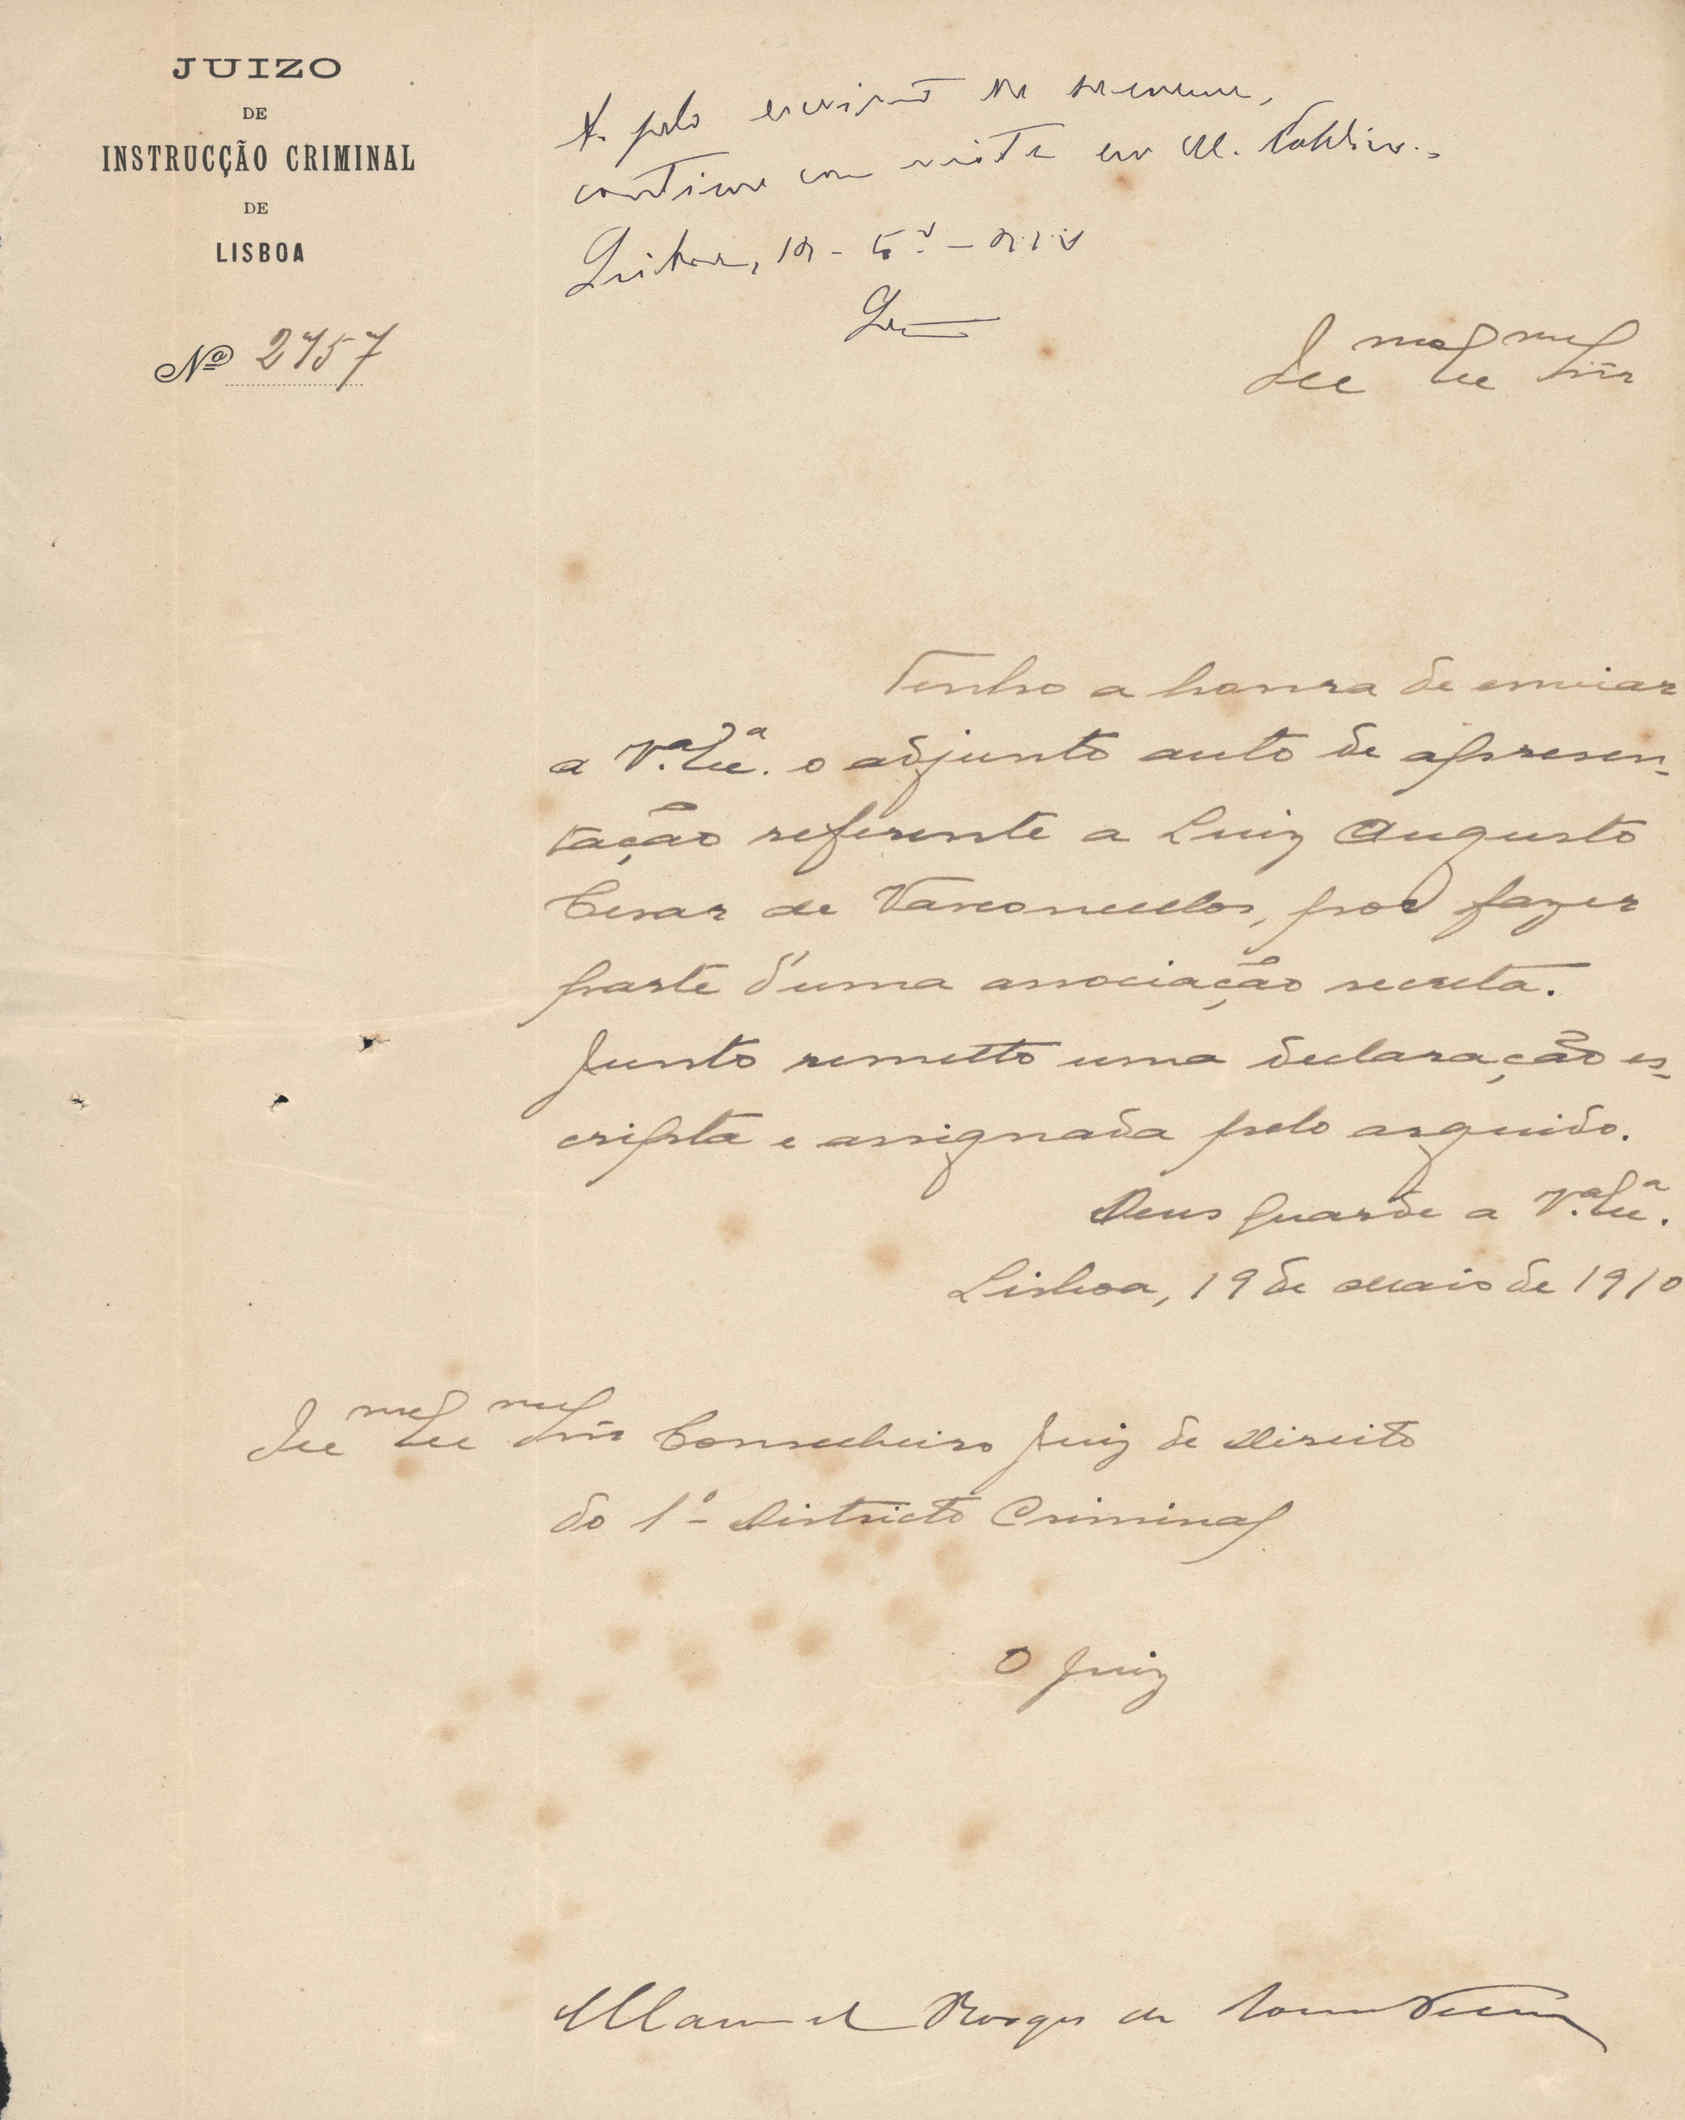 JUIZO
DE
INSTRUCÇÃO CRIMINAL
DE
LISBOA
Nº 2757
A. pelo escrivão de semana,
continue com vista ao M. Publico.
Lisboa, 19-5º-910
Illmo Exmo Snr
Tenho a honra de enviar
a V.ª Ex.ª o adjunto auto de apresen-
tação referente a Luiz Augusto
Cesar de Vasconcellos, por fazer
parte d'uma associação secreta.
Junto remetto uma declaração es-
cripta e assignada pelo arguido.
Deus Guarde a V.ª Ex.ª
Lisboa, 19 de Maio de 1910
Illmo Exmo Snr Conselheiro Juiz de Direito
do 1º Districto Criminal
O Juiz
Manuel Borges de